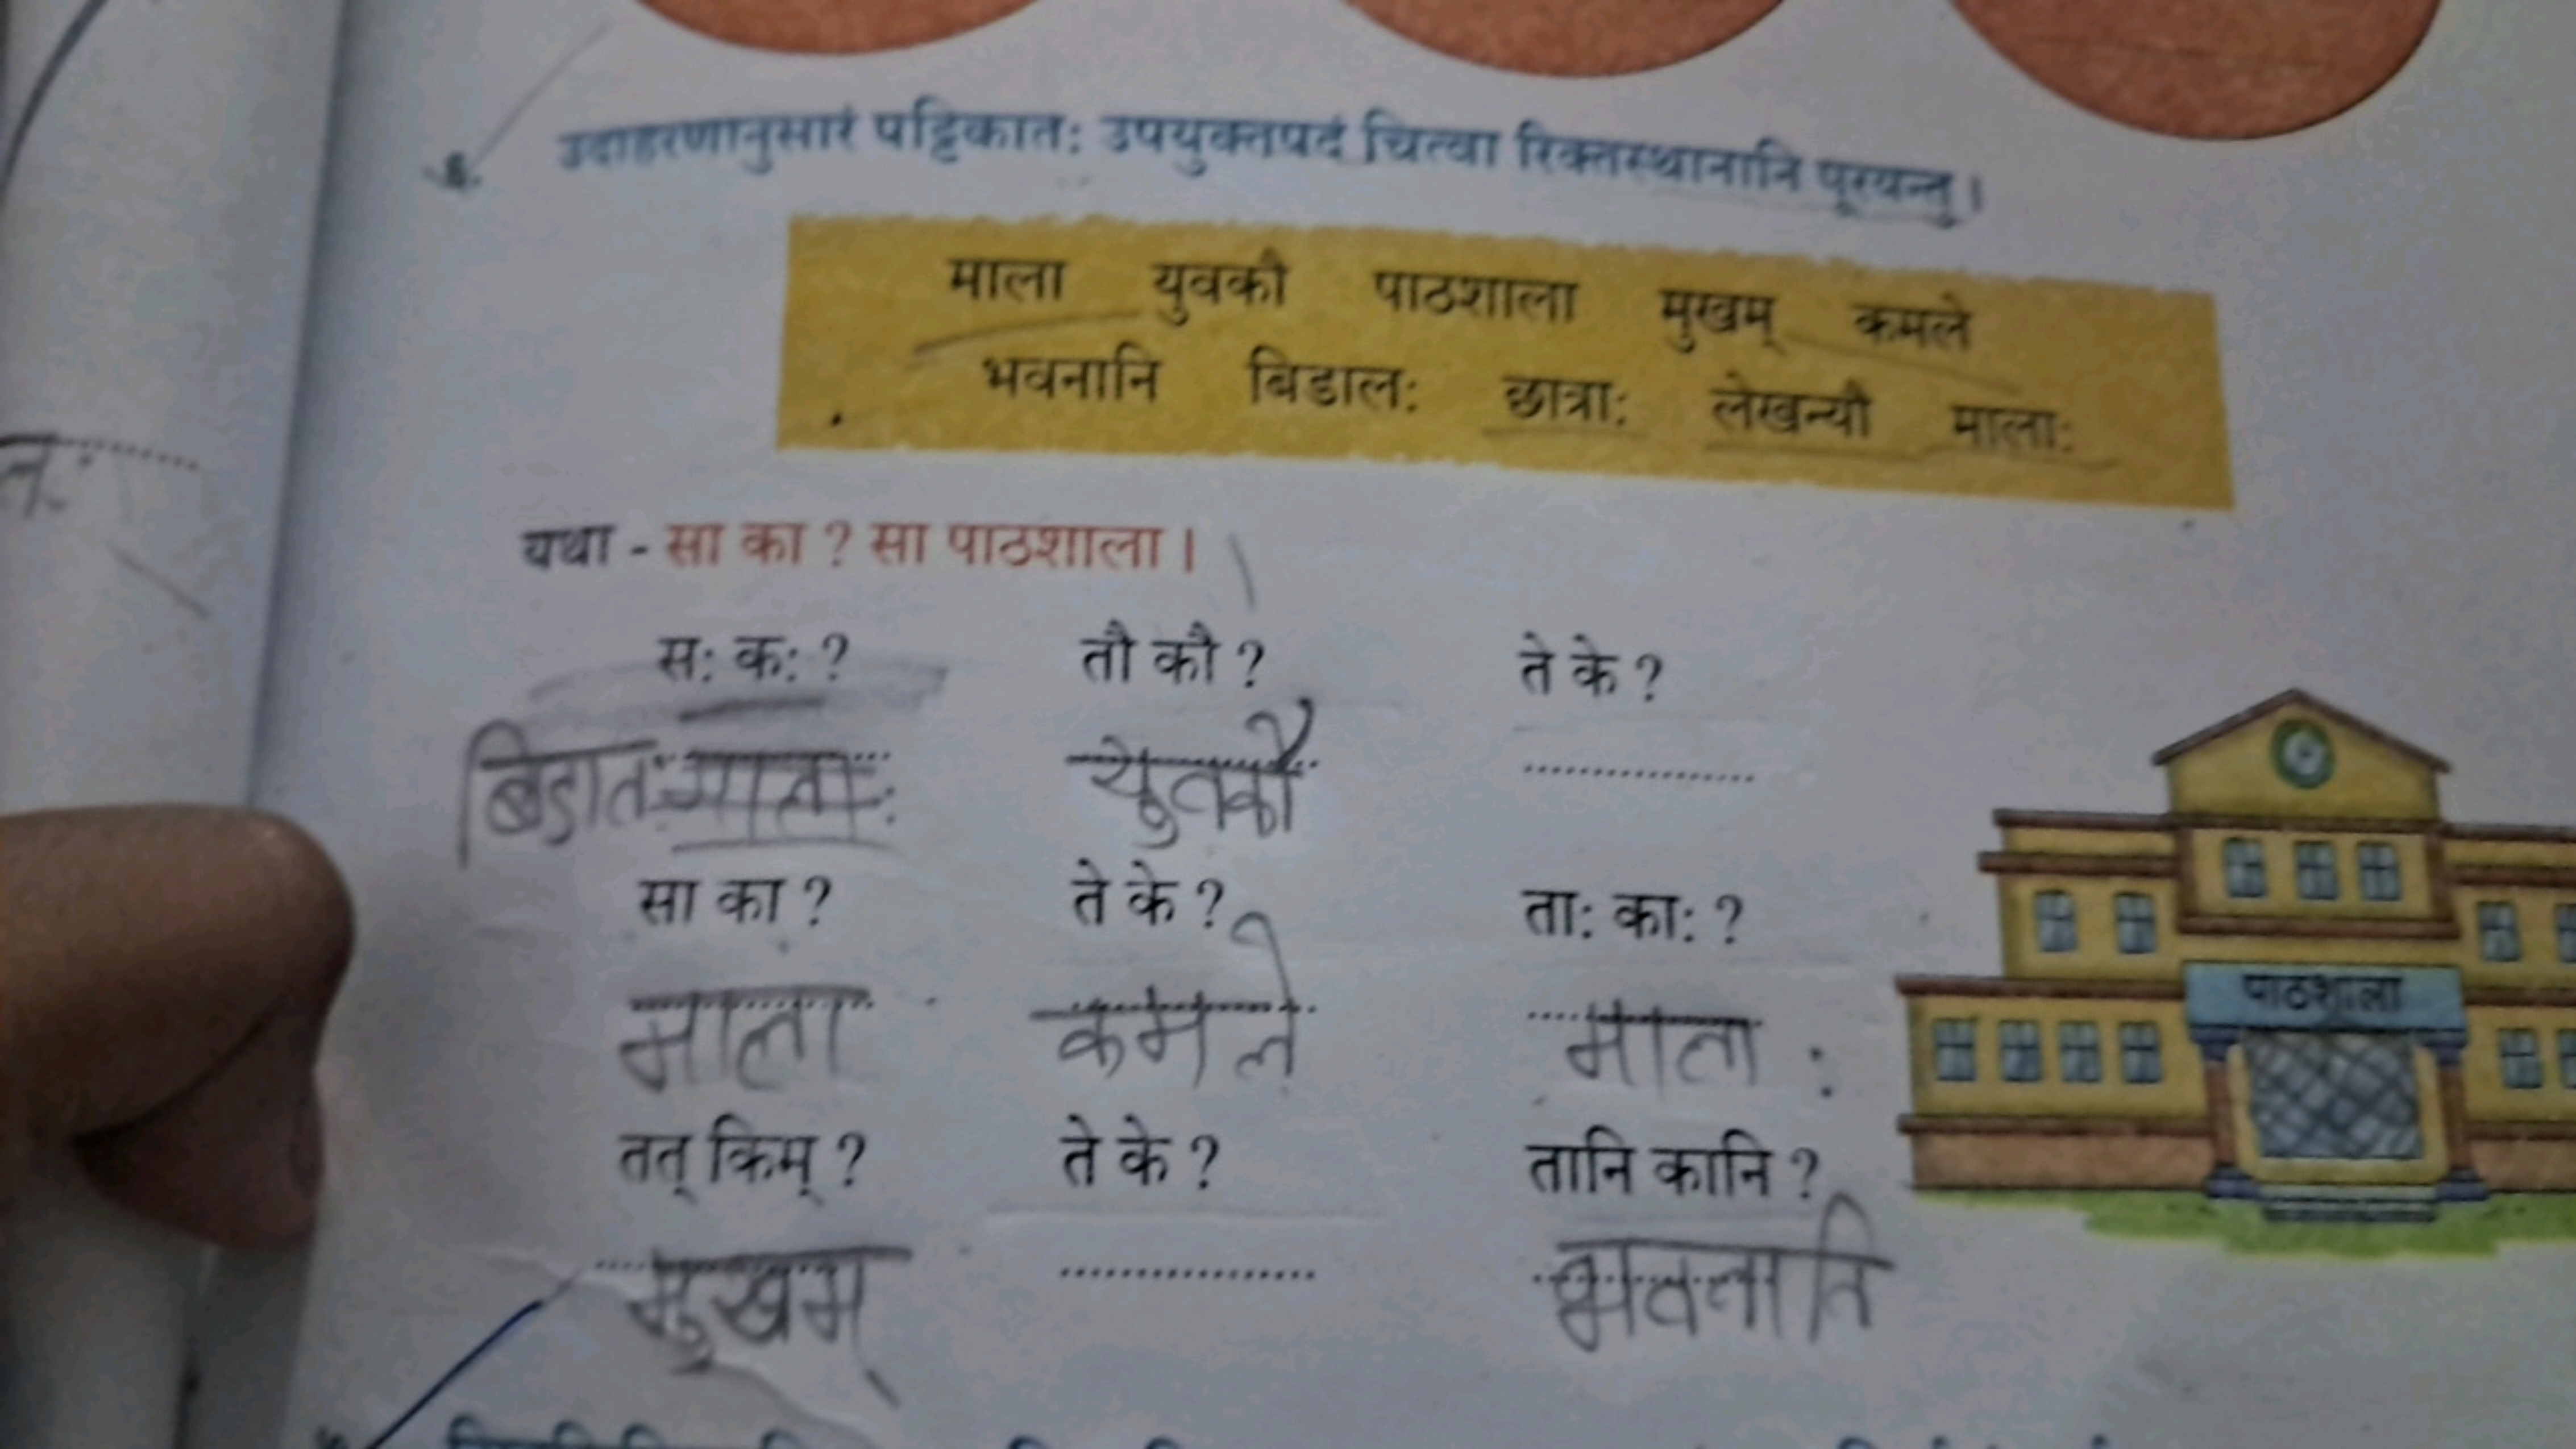 ६. उदाहरणानुसारं पट्टिकातः उपयुक्तपदं चित्वा रिक्तस्थानानि पूरयन्तु।
माला युवकौ पाठशाला मुखम् कमले
भवनानि बिडालः छात्राः लेखन्यौ मालाः
यथा - सा का ? सा पाठशाला।
सः कः ? तौ कौ ? ते के ?
बिडातः माताः युतकौ
सा का ? ते के ? ताः काः ?
माला कमले माताः
पाठशाला
तत् किम् ? ते के ? तानि कानि ?
मुखम् भवनानि